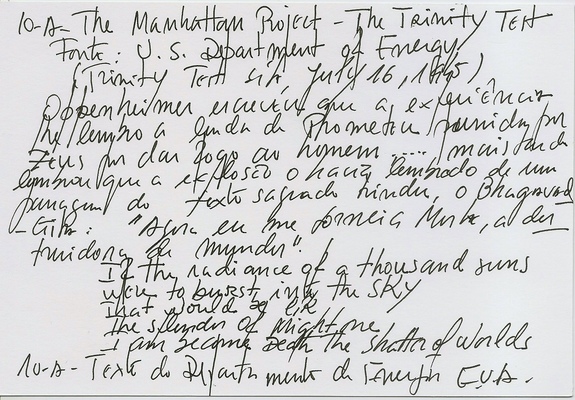 10-A- The Manhattan Project - The Trinity Test
Fonte: U.S. Department of Energy
(Trinity Test Sit, July 16, 1945)
Oppenheimer escreveu que a experiência
lhe lembro a lenda de Prometeu punido por
Zeus por dar fogo ao homem .... mais tarde
lembrou que a explosão o havia lembrado de um
do texto sagrado hindu, o Bhagavad
-Gita: "Agora eu me Morte, a des
truidora de mundos".
If the radiance of a thousand suns
were to burst into the SKY
that would be like
the splendor of Might one
I am become Death the shatter of Worlds
10-A- Texto do Departamento de Energia E.U.A.